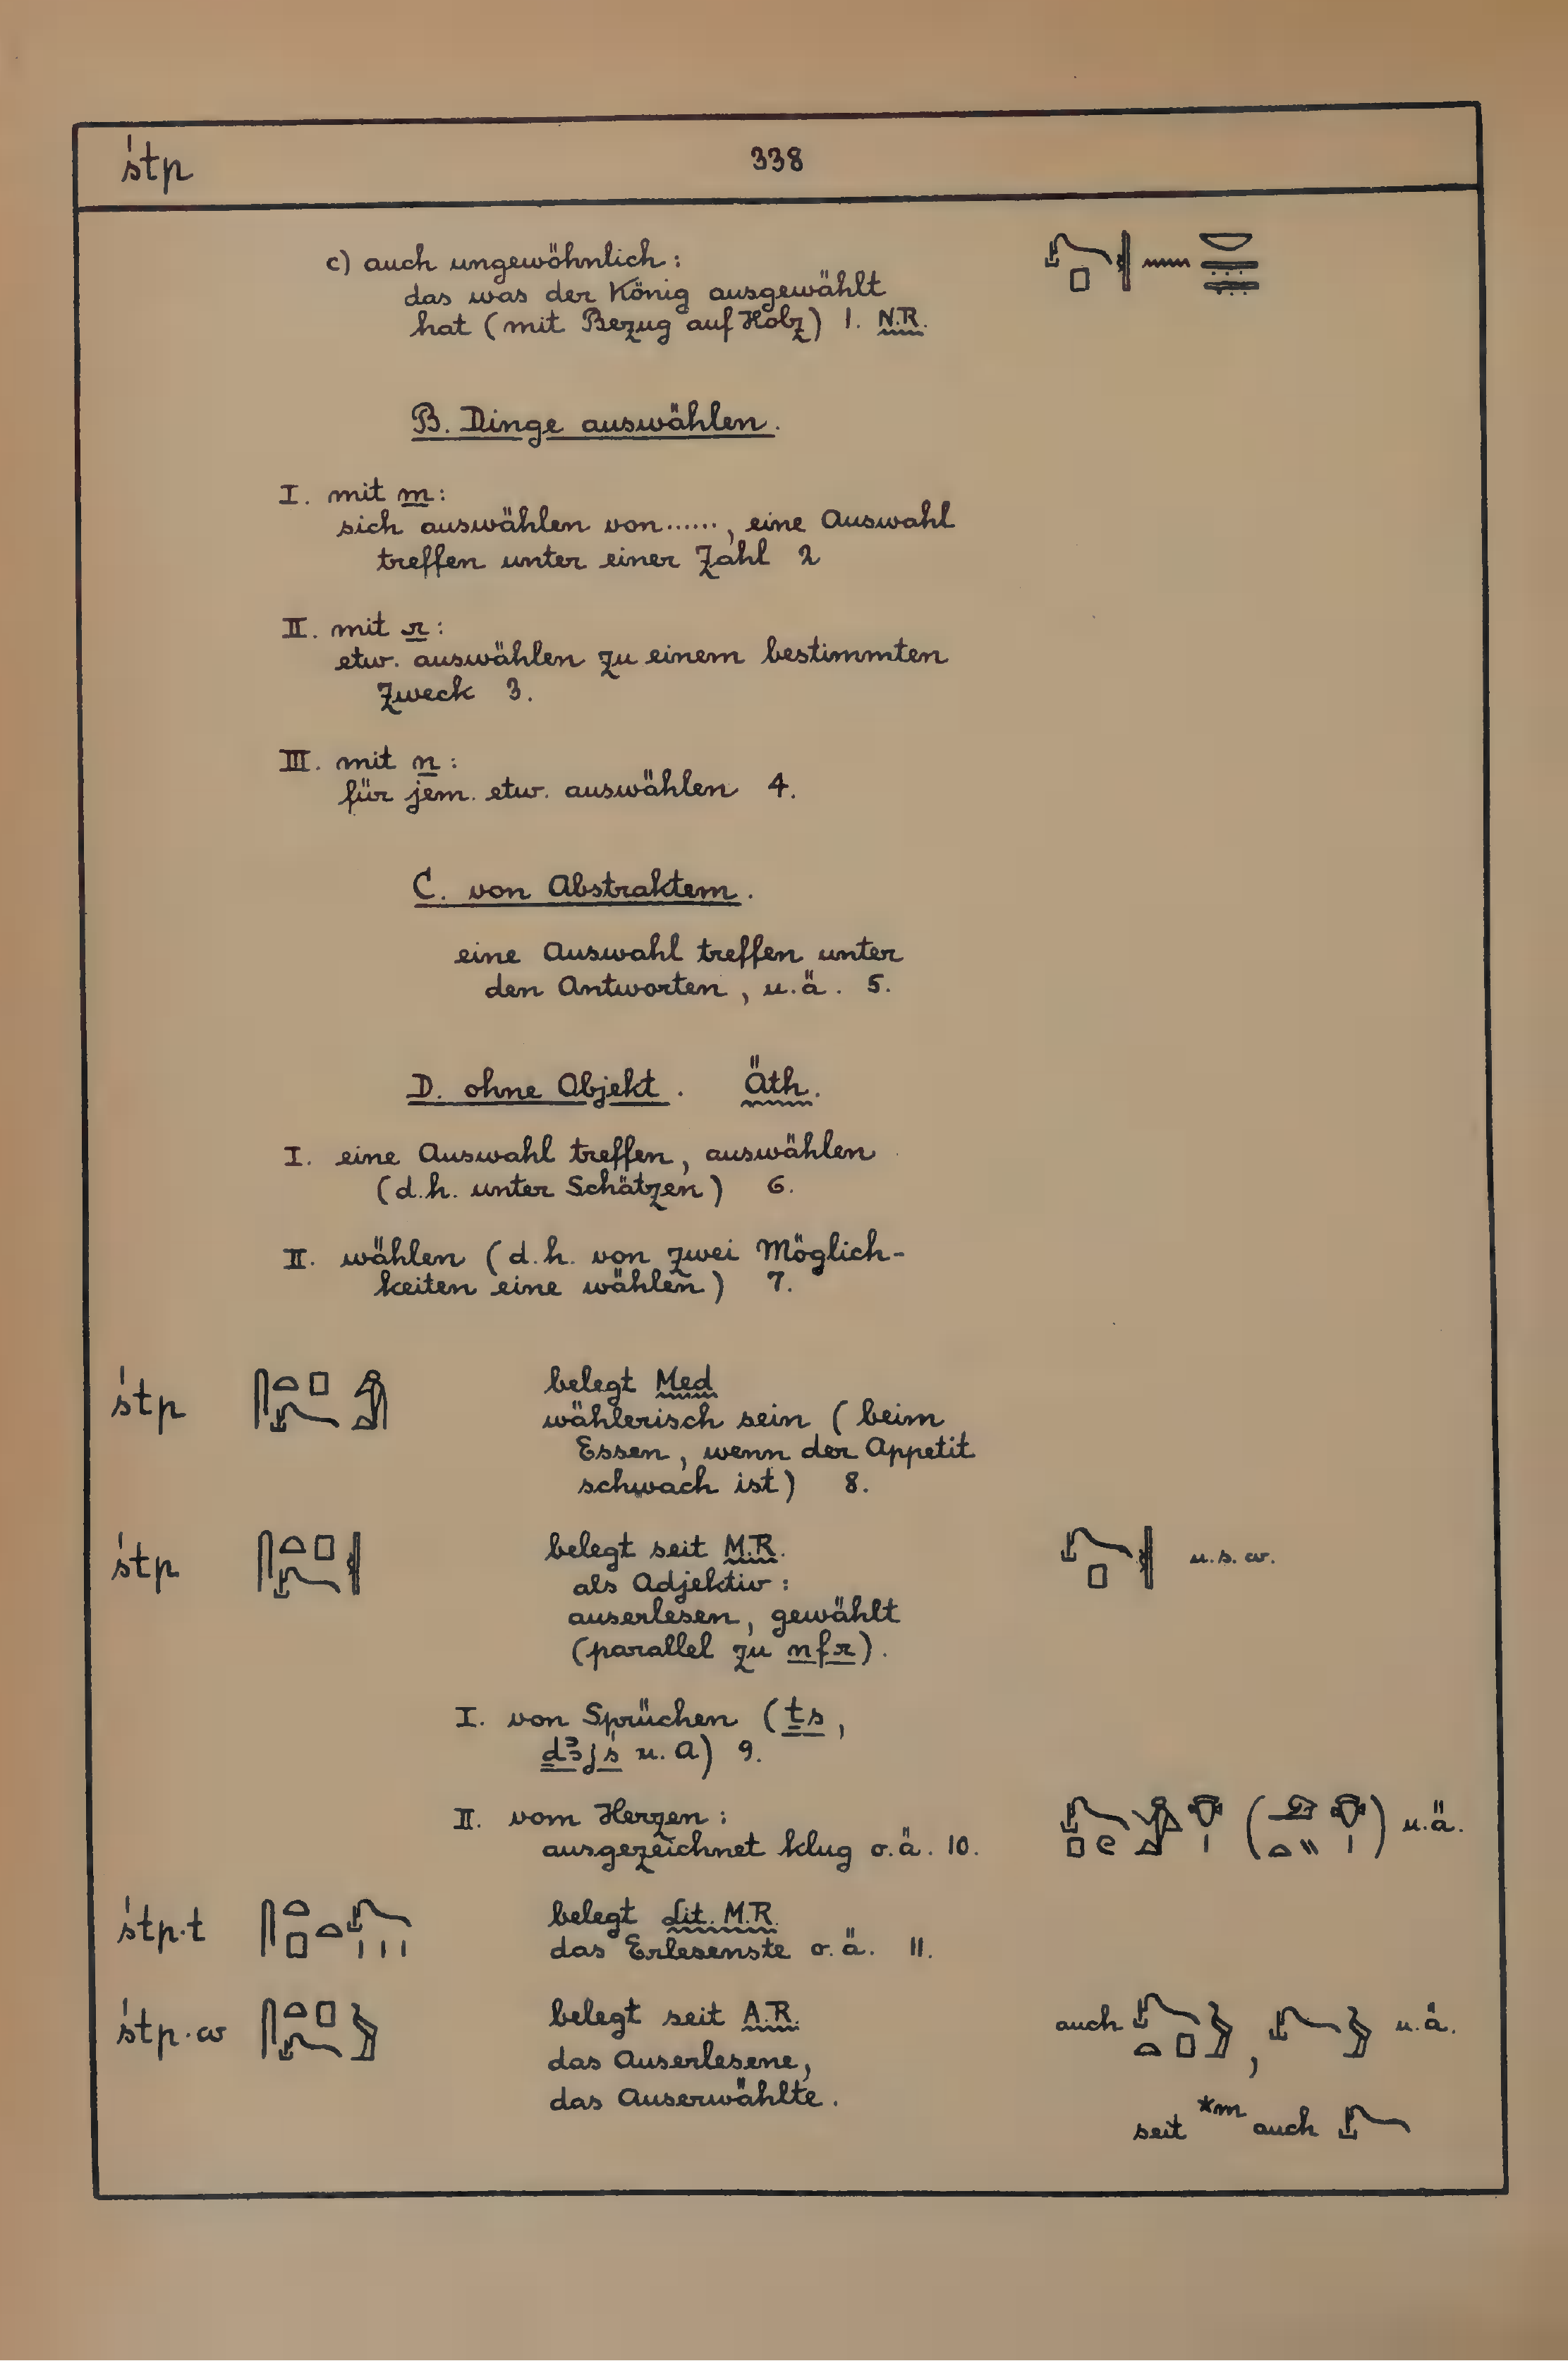 śtp 338
c) auch ungewöhnlich:
das was der König ausgewählt
hat (mit Bezug auf Holz) 1. N.R.
B. Dinge auswählen.
I. mit m:
sich auswählen von......, eine Auswahl
treffen unter einer Zahl 2
II. mit r:
etw. auswählen zu einem bestimmten
Zweck 3.
III. mit n:
für jem. etw. auswählen 4.
C. von Abstraktem.
eine Auswahl treffen unter
den Antworten, u.ä. 5.
D. ohne Objekt. Äth.
I. eine Auswahl treffen, auswählen
(d.h. unter Schätzen) 6.
II. wählen (d.h. von zwei Möglich-
keiten eine wählen) 7.
śtp belegt Med
wählerisch sein (beim
Essen, wenn der Appetit
schwach ist) 8.
śtp belegt seit M.R. u.s.w.
als Adjektiv:
auserlesen, gewählt
(parallel zu nfr).
I. von Sprüchen (ṯs,
ḏꜣjś u. A) 9.
II. vom Herzen: u.ä.
ausgezeichnet klug o.ä. 10.
śtp.t belegt Lit. M.R.
das Erlesenste o.ä. 11.
śtp.w belegt seit A.R. auch , u.ä.
das Auserlesene,
das Auserwählte.
seit *m auch